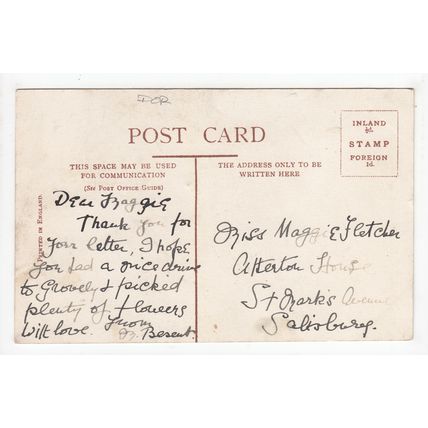 DOR
POST CARD
THIS SPACE MAY BE USED
FOR COMMUNICATION
(See Post Office Guide)
THE ADDRESS ONLY TO BE
WRITTEN HERE
INLAND
½d.
STAMP
FOREIGN
1d.
PRINTED IN ENGLAND.
Dear Maggie
Thank you for
Your letter, I hope
you had a nice drive
to Grovely & picked
plenty of flowers
with love. from
Besent.
Miss Maggie Fletcher
Atterton House
St Mark's Avenue
Salisbury.